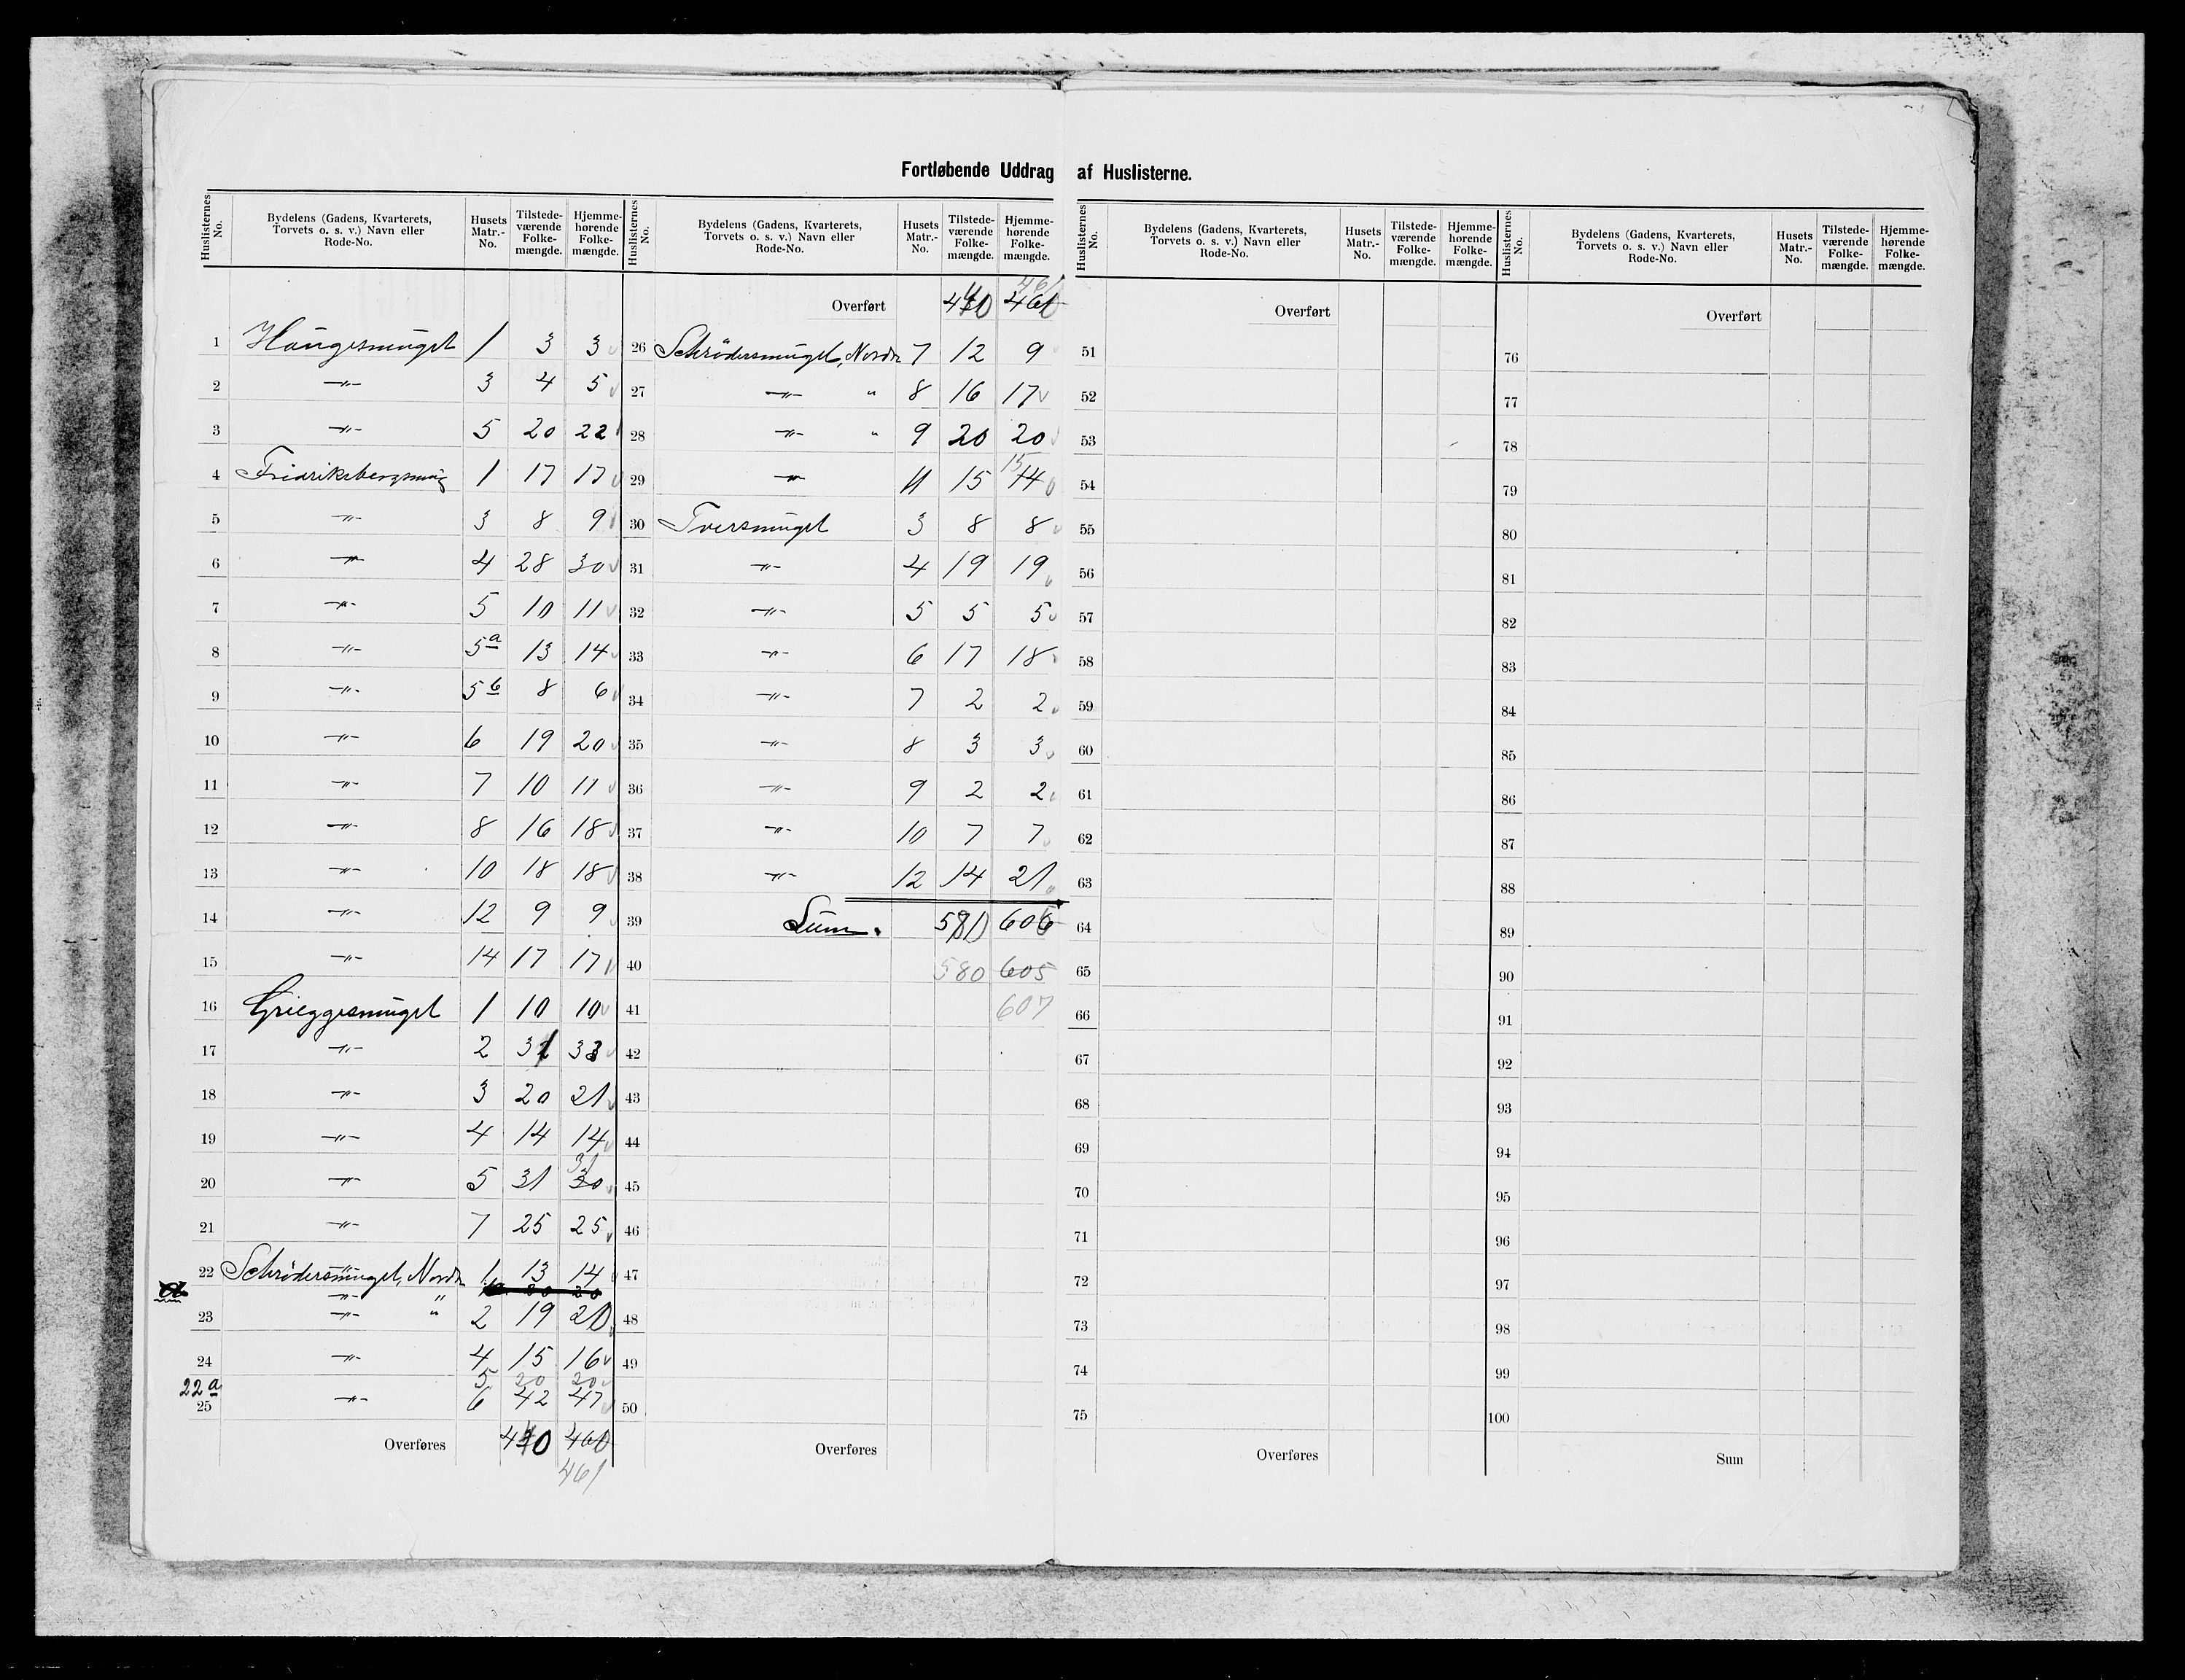 Fortløbende Uddrag af Huslisterne.
Huslisternes No. | Bydelens (Gadens, Kvarterets, Torvets o. s. v.) Navn eller Rode-No. | Husets Matr.-No. | Tilstedeværende Folkemængde. | Hjemmehørende Folkemængde.
1 Haugesmuget 1 3 3
2 —"— 3 4 5
3 —"— 5 20 22
4 Fredriksbergsmug 1 17 17
5 —"— 3 8 9
6 —"— 4 28 30
7 —"— 5 10 11
8 —"— 5a 13 14
9 —"— 5b 8 6
10 —"— 6 19 20
11 —"— 7 10 11
12 —"— 8 16 18
13 —"— 10 18 18
14 —"— 12 9 9
15 —"— 14 17 17
16 Grieggesmuget 1 10 10
17 —"— 2 31 33
18 —"— 3 20 21
19 —"— 4 14 14
20 —"— 5 31 30 31
21 —"— 7 25 25
22 Schrødersmuget, Nordre 1 13 14
—"— " 20 20
23 —"— " 2 19 20
24 —"— 4 15 16
22a 5 20 20
25 —"— 6 42 47
Overføres 440 460
461
Huslisternes No. | Bydelens (Gadens, Kvarterets, Torvets o. s. v.) Navn eller Rode-No. | Husets Matr.-No. | Tilstedeværende Folkemængde. | Hjemmehørende Folkemængde.
461
Overført 440 460
26 Schrødersmuget, Nordre 7 12 9
27 —"— " 8 16 17
28 —"— " 9 20 20
29 —"— 11 15 14 15
30 Tversmuget 3 8 8
31 —"— 4 19 19
32 —"— 5 5 5
33 —"— 6 17 18
34 —"— 7 2 2
35 —"— 8 3 3
36 —"— 9 2 2
37 —"— 10 7 7
38 —"— 12 14 21
39 Sum. 580 605
40 580 605
41 607
42
43
44
45
46
47
48
49
50
Overføres
Huslisternes No. | Bydelens (Gadens, Kvarterets, Torvets o. s. v.) Navn eller Rode-No. | Husets Matr.-No. | Tilstedeværende Folkemængde. | Hjemmehørende Folkemængde.
Overført
51
52
53
54
55
56
57
58
59
60
61
62
63
64
65
66
67
68
69
70
71
72
73
74
75
Overføres
Huslisternes No. | Bydelens (Gadens, Kvarterets, Torvets o. s. v.) Navn eller Rode-No. | Husets Matr.-No. | Tilstedeværende Folkemængde. | Hjemmehørende Folkemængde.
Overført
76
77
78
79
80
81
82
83
84
85
86
87
88
89
90
91
92
93
94
95
96
97
98
99
100
Sum